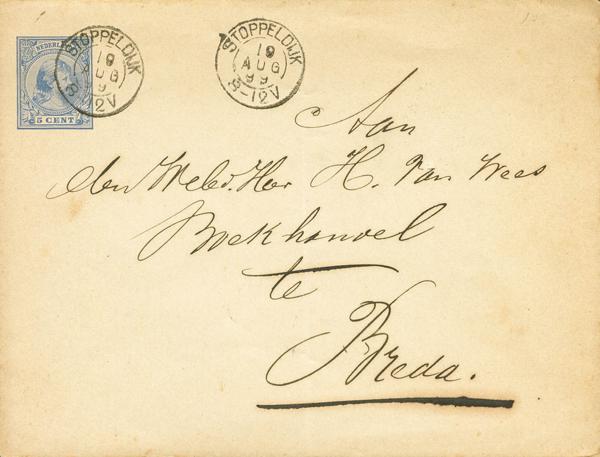 NEDERLAND
5 CENT
STOPPELDIJK
19
AUG
99
8-12V
STOPPELDIJK
19
AUG
99
8-12V
Aan
den Weled. Heer H. Van Wees
Boekhandel
te
Breda.